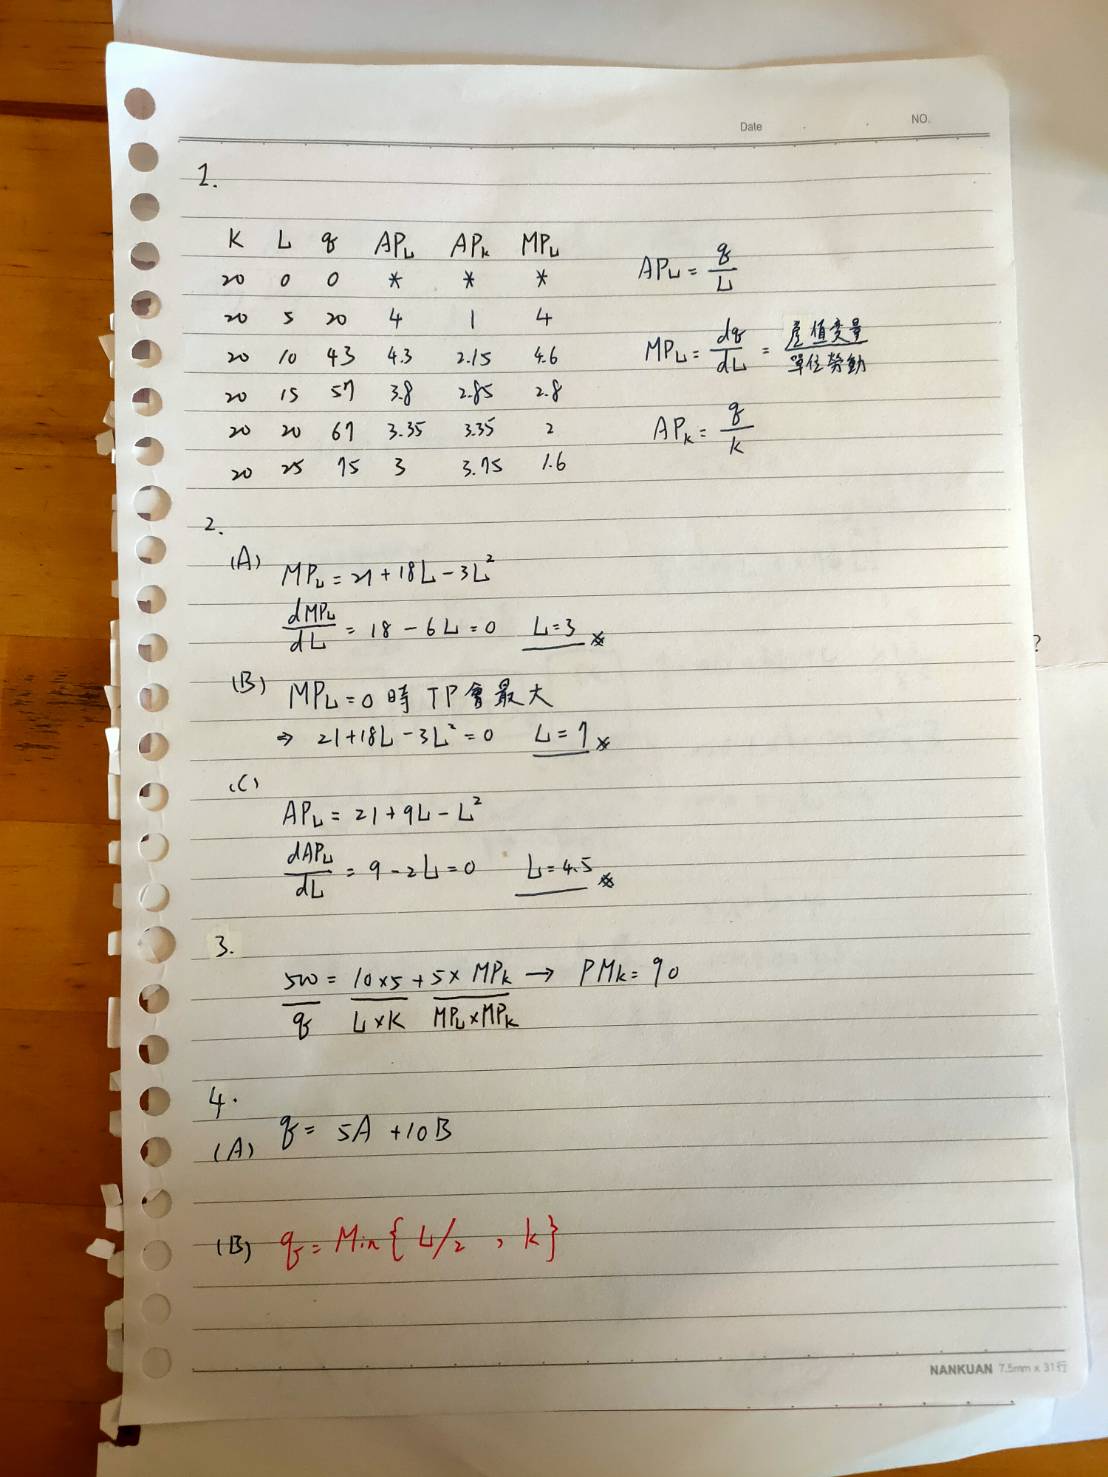 Date
NO.
1.
K L q AP_L AP_K MP_L
20 0 0 * * *
20 5 20 4 1 4
20 10 43 4.3 2.15 4.6
20 15 57 3.8 2.85 2.8
20 20 67 3.35 3.35 2
20 25 75 3 3.75 1.6
AP_L = q/L
MP_L = dq/dL = 產值變量/單位勞動
AP_K = q/K
2.
(A) MP_L = 21 + 18L - 3L²
dMP_L/dL = 18 - 6L = 0 L = 3 ※
(B) MP_L = 0 時 TP 會最大
⇒ 21 + 18L - 3L² = 0 L = 7 ※
(C)
AP_L = 21 + 9L - L²
dAP_L/dL = 9 - 2L = 0 L = 4.5 ※
3.
500 = 10×5 + 5× MP_K → PMk = 90
q L×K MP_L×MP_K
4.
(A) q = 5A + 10B
(B) q = Min{ L/2 , k}
?
NANKUAN 7.5mm x 31行